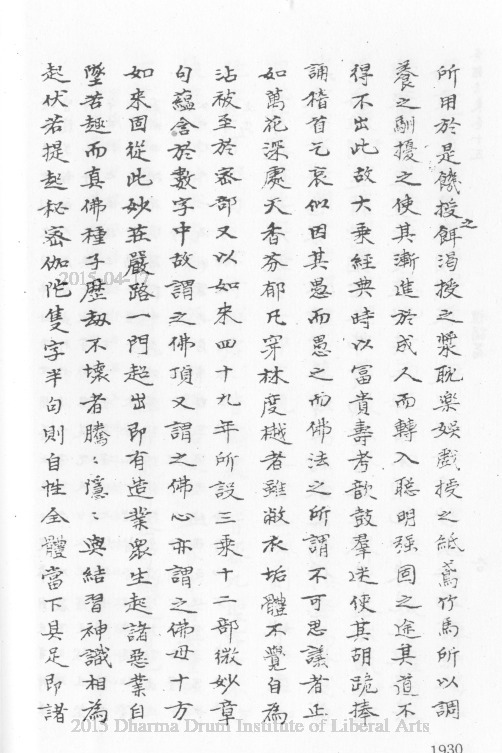 所用於是饑授之餌渴授之漿耽樂娛戲授之紙鳶竹馬所以調
養之馴擾之使其漸進於成人而轉入聰明強固之途其道不
得不出此故大乘經典時以富貴壽考歆鼓羣迷使其胡跪捧
誦稽首乞哀似因其愚而愚之而佛法之所謂不可思議者正
如萬花深處天香芬郁凡穿林度樾者雖敝衣垢體不覺自為
沾被至於密部又以如來四十九年所設三乘十二部微妙章
句蘊含於數字中故謂之佛頂又謂之佛心亦謂之佛母十方
如來固從此妙莊嚴路一門超出即有造業眾生起諸惡業自
墜苦趣而真佛種子歷劫不壞者騰：隱：與結習神識相為
起伏若提起秘密伽陀隻字半句則自性全體當下具足即諸
2015-04-17
2013 Dharma Drum Institute of Liberal Arts
1930